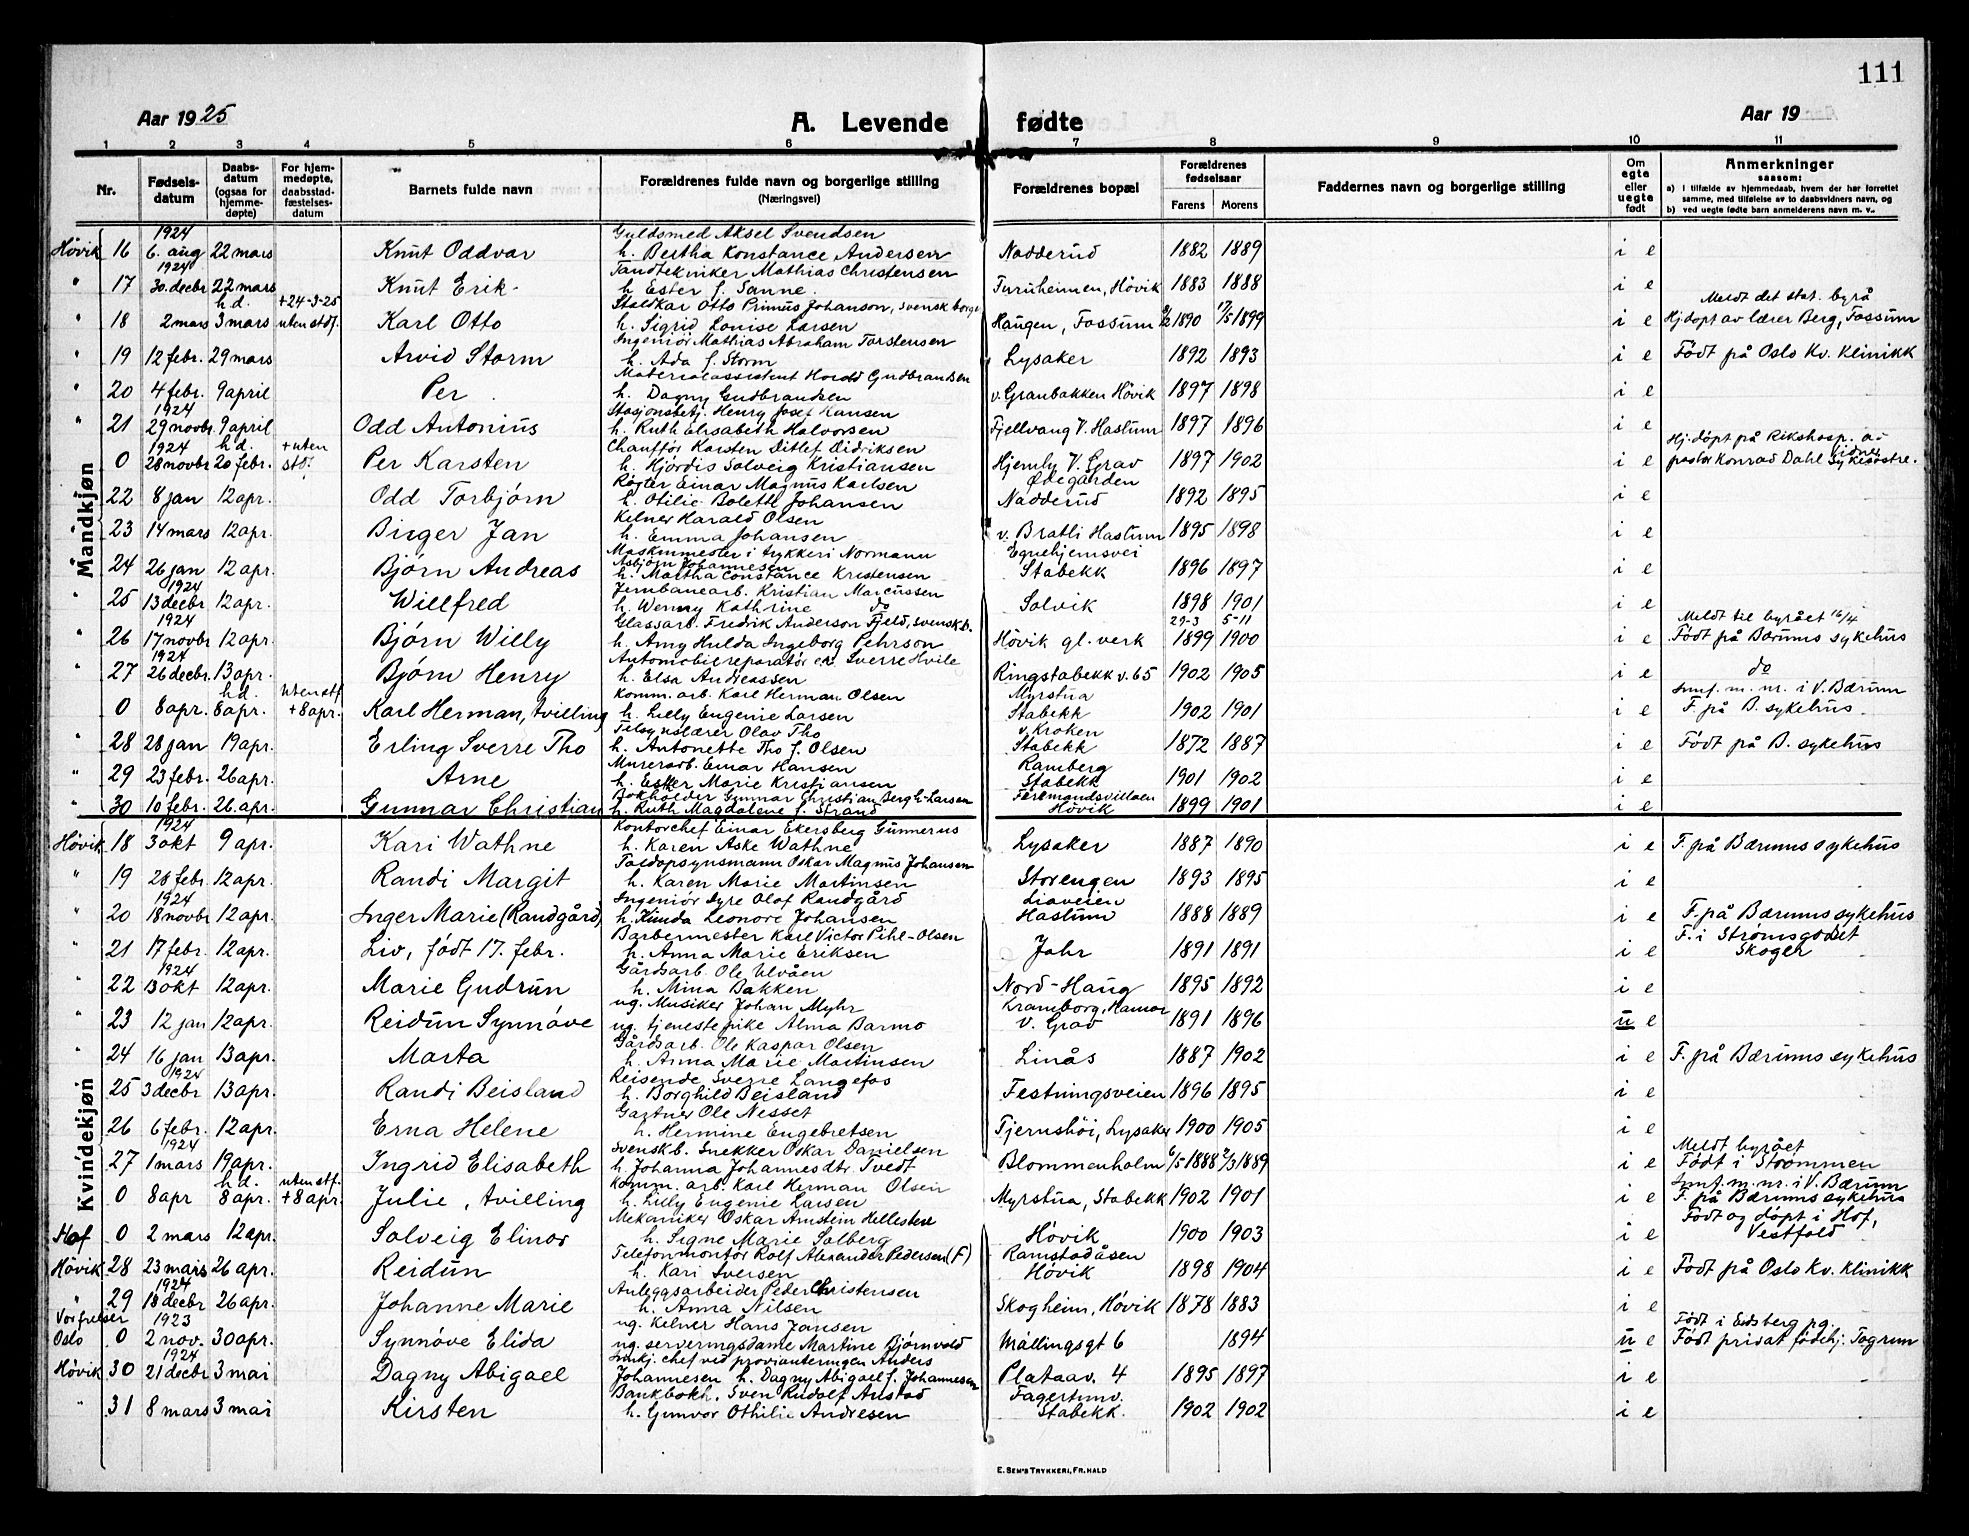 111
Aar 1925 A. Levende fødte Aar 19
1 2 3 4 5 6 7 8 9 10 11
Nr. Fødsels-datum Daabs-datum (ogsaa for hjemme-døpte) For hjem-medøpte, daabsstad-fæstelses-datum Barnets fulde navn Forældrenes fulde navn og borgerlige stilling (Næringsvei) Forældrenes bopæl Forældrenes fødselsaar Farens Morens Faddernes navn og borgerlige stilling Om egte eller uegte født Anmerkninger saasom:
a) i tilfælde av hjemmedaab, hvem der har forrettet samme, med tilføielse av to daabsvidners navn, og
b) ved uegte fødte barn anmelderens navn m. v..
Mandkjøn
Høvik 16 1924 6. aug 22 mars Knut Oddvar Guldsmed Aksel Svendsen h. Bertha Konstance Andersen Nadderud 1882 1889 i e
" 17 1924 30. decbr 22 mars Knut Erik Tandtekniker Mathias Christensen h Ester f. Sanne. Furuheimen, Høvik 1883 1888 i e
" 18 2 mars h.d. 3 mars +24-3-25 uten stdf. Karl Otto Staldkar Otto Primus Johanson, svensk borger h. Sigrid Louise Larsen Haugen, Fossum 1890 17/5 1899 i e Meldt det stat. byrå Hj.døpt av lærer Berg, Fossum
" 19 12 febr. 29 mars Arvid Storm Ingeniør Mathias Abraham Torstensen h. Ada f. Storm Lysaker 1892 1893 i e Født på Oslo Kv. klinikk
" 20 4 febr. 9 april Per Materialassistent Harald Gudbrandsen h. Dagny Gudbrandsen v. Granbakken Høvik 1897 1898 i e
" 21 1924 29 novbr. 9 april Odd Antonius Stasjonsbetj. Henry Josef Hansen h. Ruth Elisabeth Halvorsen Fjellvang V. Haslum 1897 1896 i e
" 0 1924 28 novbr h.d. 20 febr. + uten stdf. Per Karsten Chauffør Karsten Ditlef Didriksen h. Hjørdis Solveig Kristiansen Hjemly V. Grav 1897 1902 i e Hj.døpt på Rikshosp. av pastor Konrad Dahl
22 8 jan 12 apr. Odd Torbjørn Røgter Einar Magnus Karlsen h. Otilie Bolette Johansen Ødegården Nadderud 1892 1895 i e
" 23 14 mars 12 apr. Birger Jan Kelner Harald Olsen h. Emma Johansen v. Bratli Haslum 1895 1898 i e
24 26 jan 12 apr. Bjørn Andreas Maskinmester i trykkeri Normann Asbjørn Johannesen h. Martha Constance Kristensen Egnehjemsvei Stabekk 1896 1897 i e
" 25 1924 13 decbr 12 apr. Willfred Jernbanearb. Kristian Marcussen h. Wenny Kathrine do Solvik 1898 1901 i e
" 26 1924 17 novbr 12 apr. Bjørn Willy Glassarb. Fredrik Anderson Fjeld, svensk b. h. Amy Hulda Ingeborg Pehrson Høvik gl. verk 29-3 1899 5-11 1900 i e Meldt til byrået 16/4 Født på Bærums sykehus
" 27 1924 26 decbr. 13 apr. Bjørn Henry Automobilreparatør Sverre Hvile h. Elsa Andreassen Ringstabekk v. 65 1902 1905 i e do
" 0 8 apr. h.d. 8 apr. Uten stf. +8 apr. Karl Herman, tvilling Komm. arb. Karl Herman Olsen h. Lilly Eugenie Larsen Myrstua Stabekk 1902 1901 i e m. nr. i V. Bærum F. på B. sykehus.
" 28 28 jan 19 apr. Erling Sverre Tho Tilsynslærer Olav Tho h. Antonette Tho f. Olsen v. Kroken Stabekk 1872 1887 i e Født på B. sykehus
" 29 23 febr. 26 apr. Arne Murerarb. Einar Hansen h. Ester Marie Kristiansen Ramberg Stabekk 1901 1902 i e
" 30 10 febr. 26. apr. Gunnar Christian Bokholder Gunnar Christian Bergh-Larsen h. Ruth Magdalene f. Strand Høvik 1899 1901 i e
Kvindekjøn
Høvik 18 1924 3 okt 9 apr. Kari Wathne Kontorchef Einar Ekersberg Gunnerus h. Karen Aske Wathne Lysaker 1887 1890 i e F. på Bærums sykehus
" 19 28 febr. 12 apr. Randi Margit Toldopsynsmann Oskar Magnus Johansen h. Karen Marie Martinsen Storengen 1893 1895 i e
" 20 1924 18 novbr 12 apr. Inger Marie (Randgård) Ingeniør Syre Olaf Randgård h. Hunda Leonore Johansen Liaveien Haslum 1888 1889 i e F. på Bærums sykehus
" 21 17 febr. 12 apr. Liv, født 17. febr. Barbermester Karl Victor Pihl-Olsen h. Anna Marie Eriksen Jahr 1891 1891 i e F. i Strømsgodset Skoger
" 22 1924 13 okt 12 apr. Marie Gudrun Gårdsarb. Ole Ulvåen h. Mina Bakken Nord-Haug 1895 1892 i e
" 23 12 jan 12 apr. Reidun Synnøve ug. Musiker Johan Myhr ug. tjenestepike Alma Barmo Kramborg, Hamar V. Grav 1891 1896 u e
" 24 16 jan 13 apr. Marta Gårdsarb. Ole Kaspar Olsen h. Anna Marie Martinsen Linås 1887 1902 i e F. på Bærums sykehus
25 1924 3 decbr 13 apr. Randi Beisland Reisende Sverre Langefos h. Borghild Beisland Festningsveien 1896 1895 i e
26 6 febr. 12 apr. Erna Helene Gartner Ole Nesset h. Hermine Engebretsen Fjernshøi, Lysaker 1900 1905 i e
27 1924 1 mars 19 apr. Ingrid Elisabeth Svensk b. Snekker Oskar Danielsen h. Johanna Johannesdtr Tvedt Blommenholm 6/5 1888 2/3 1889 i e Meldt byrået Født i Strømmen
0 8 apr h.d. 8 apr. uten stf. +8 apr. Julie, tvilling Komm. arb. Karl Herman Olsen h. Lilly Eugenie Larsen Myrstua, Stabekk 1902 1901 i e m. nr. i V. Bærum F. på Bærums sykehus
Hof 0 2 mars 12 apr. Solveig Elinor Mekaniker Oskar Arnstein Hellesten h. Signe Marie Solberg Høvik 1900 1903 i e Født og døpt i Hof, Vestfold
Høvik 28 23 mars 26 apr. Reidun Telefonmontør Rolf Alexander Pedersen (F) h. Kari Iversen Ramstadåsen Høvik 1898 1904 i e Født på Oslo Kv. klinikk
" 29 1924 18 decbr 26 apr. Johanne Marie Anleggsarbeider Peder Christensen h. Anna Nilsen Skogheim, Høvik 1878 1883 i e
Vorfrelser Oslo 0 1923 2 nov. 30 apr. Synnøve Elida ug. Kelner Hans Jansen ug. serveringsdame Martine Bjørnvold Mållingsgt 6 1894 u e Født i Eidsberg pg. Født privat fødehj: Togrun
Høvik 30 1924 21 decbr 3 mai Dagny Abigael chef ved provianteringen Anders Johannesen h. Dagny Abigael f. Johannesen Plataav. 4 1895 1897 i e
" 31 8 mars 3 mai Kirsten Bankbokh. Sven Rudolf Anstad h. Gunvor Othilie Andresen Fagertunv. Stabekk. 1902 1902 i e
E. SEM'S TRYKKERI, FR.HALD